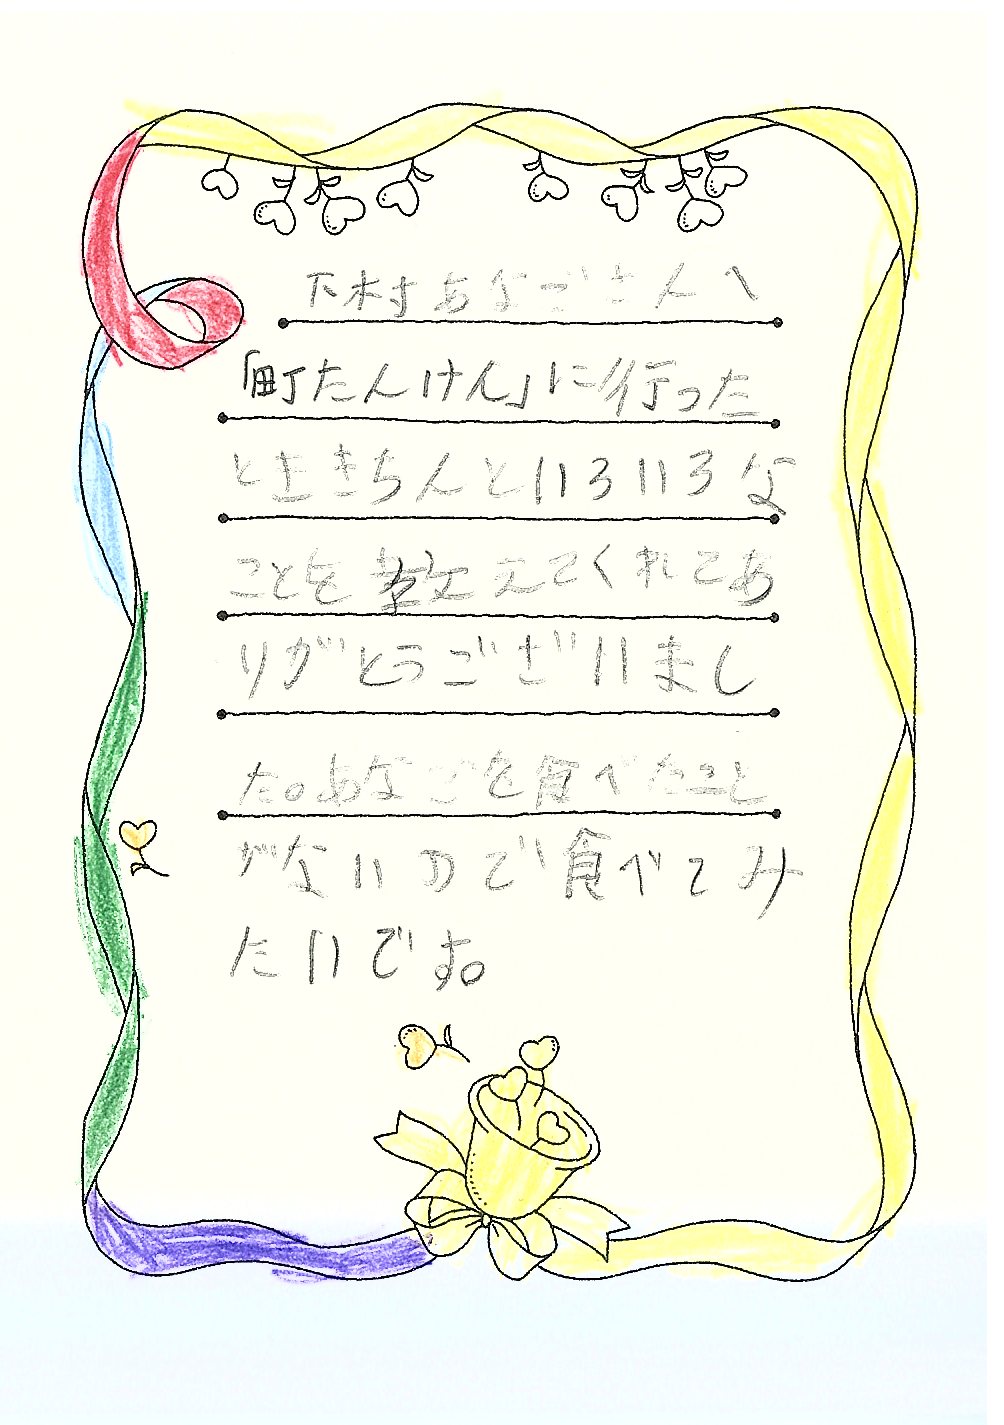 下村あなごさんへ
「町たんけん」に行った
ときちんといろいろな
ことを教えてくれてあ
りがとうございまし
た。あなごを食べたこと
がないので食べてみ
たいです。